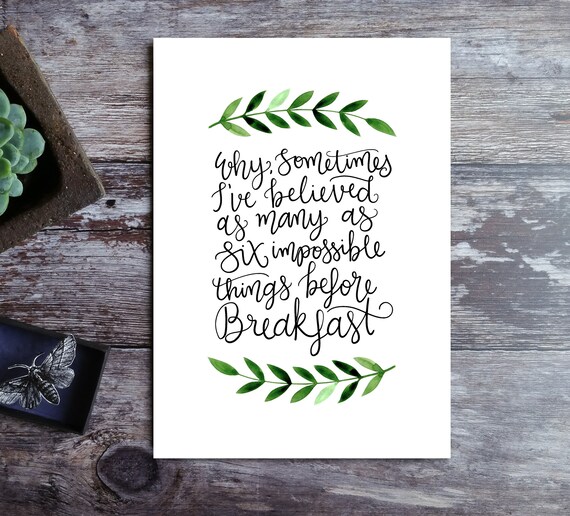 Why, Sometimes
I've believed
as many as
six impossible
things before
Breakfast